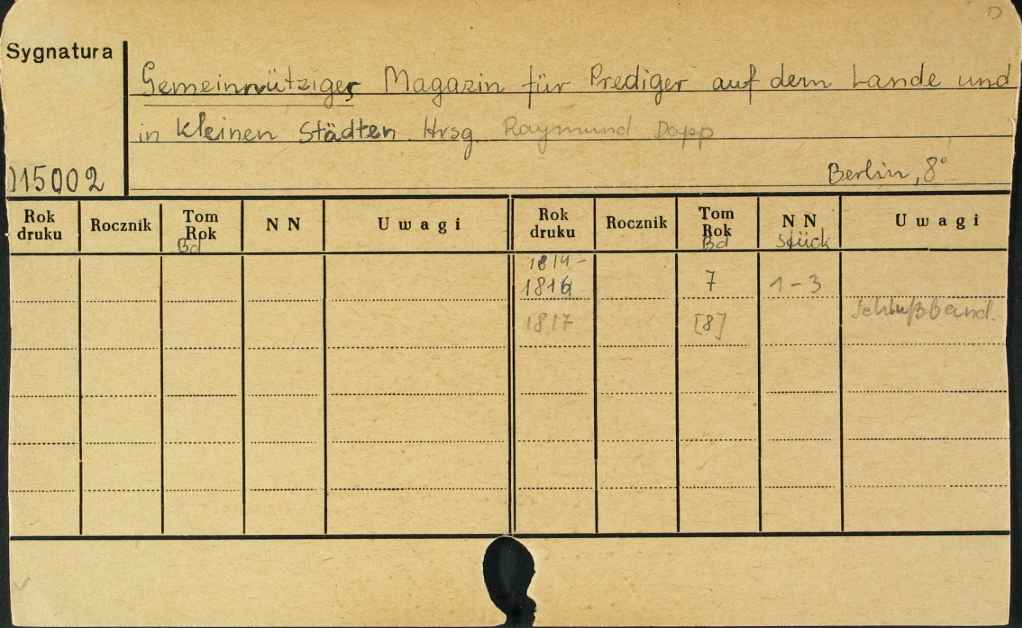 Sygnatura
Gemeinnütziges Magazin für Prediger auf dem Lande und
in kleinen Städten. Hrsg. Raymund Dapp
015002
Berlin, 8°
Rok druku Rocznik Tom Rok Bd NN Uwagi Rok druku Rocznik Tom Rok Bd NN Stück Uwagi
1814-
1816 7 1-3
1817 [8] Schlußband.